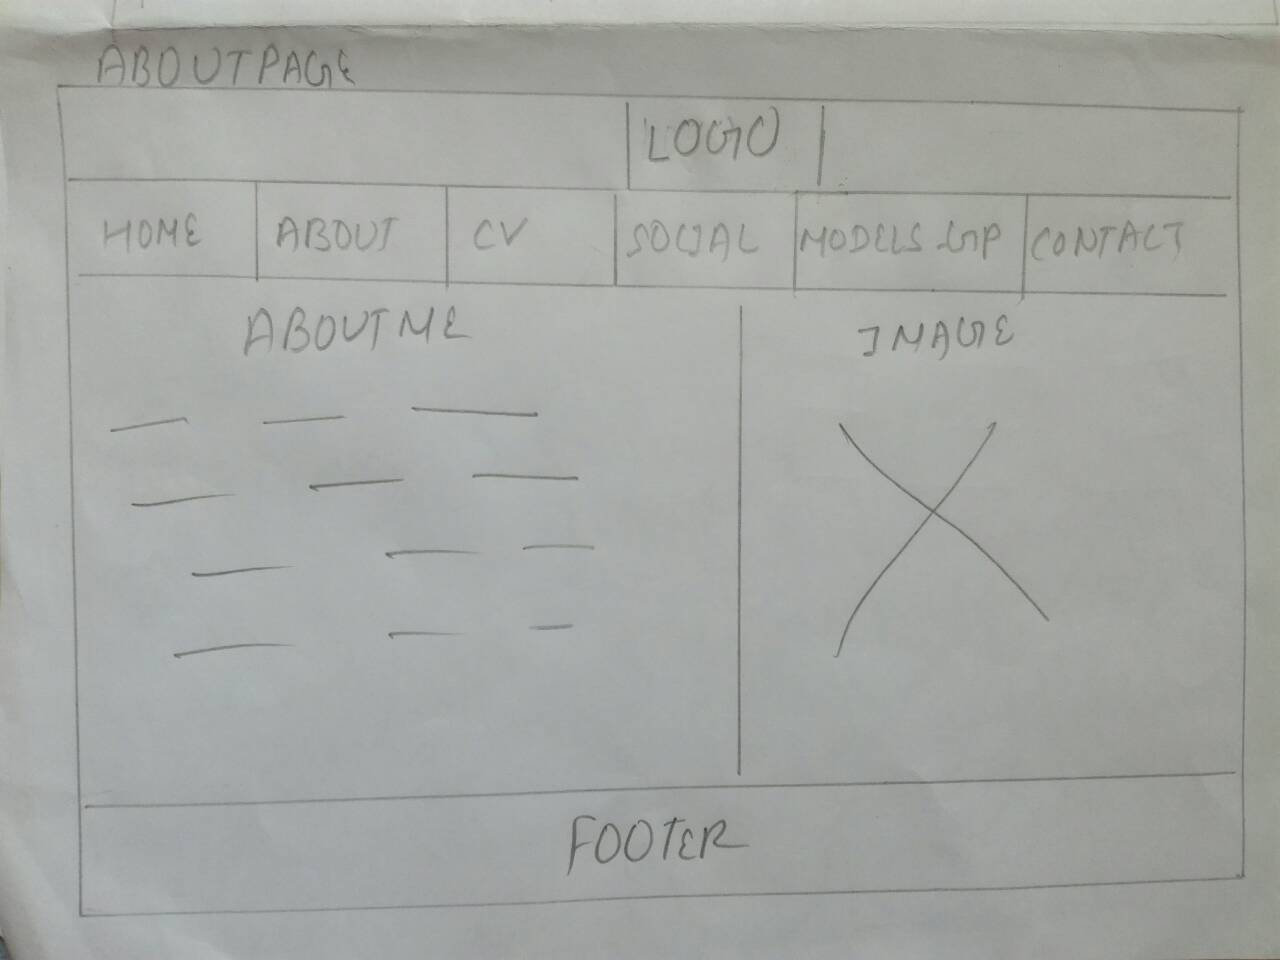 ABOUT PAGE
LOGO
HOME ABOUT CV SOCIAL MODELS CONTACT
ABOUT ME IMAGE
FOOTER